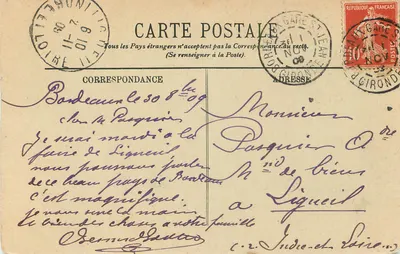 CARTE POSTALE
Tous les Pays étrangers n'acceptent pas la Correspondance au recto.
(Se renseigner à la Poste).
CORRESPONDANCE
ADRESSE
GARE St JEAN
GIRONDE
NOV
10
Bordeaux le 30 8bre 09
cher M. Pasquier
je serai mardi à la
foire de Ligueil
nous pourrons parler
de ce beau pays de Bordeaux
c'est magnifique
je vous serre la main
et bien des choses a votre famille
Monsieur
Pasquier
Md de biens
a Ligueil
Indre-et-Loire